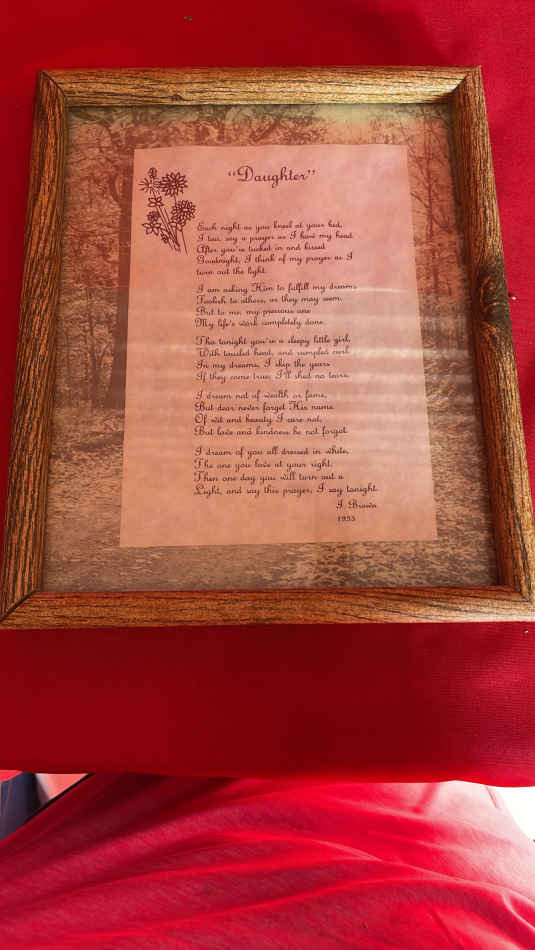 "Daughter"
Each night as you kneel at your bed,
I too, say a prayer as I bow my head.
After you're tucked in and kissed
Goodnight, I think of my prayer as I
turn out the light.
I am asking Him to fulfill my dreams
Foolish to others, or they may seem.
But to me, my precious one
My life's work completely done.
Tho tonight you're a sleepy little girl,
With tousled head, and rumpled curl
In my dreams, I skip the years
If they come true, I'll shed no tears.
I dream not of wealth or fame,
But dear never forget His name
Of wit and beauty I care not,
But love and kindness be not forgot.
I dream of you all dressed in white,
The one you love at your right.
Then one day you will turn out a
Light, and say this prayer, I say tonight.
I. Brown
1955